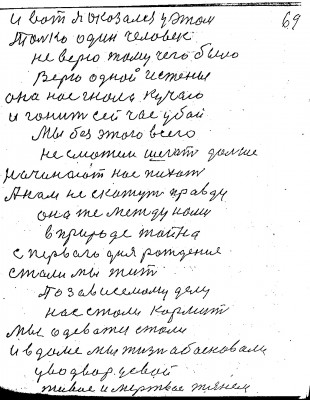 69
И вот я оказался у этом
Только один человек
не верю тому чего было
Верю одной истены
она нас гнола кучаю
и гонит сей час убой
Мы без этого всего
не сможем шегат дальше
начинают нас пихат
А нам не скажут правду
она же между нами
в природе тайна
с первого дня рождения
стали мы жит
По зависемому делу
нас стали кормит
мы одевати стали
и в доме мы жизн обосновали
живое и мертвое тянем